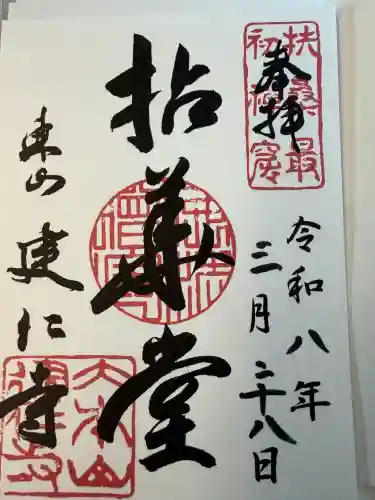 奉拝
扶桑最
初禅窟
令和八年
三月二十八日
拈華堂
東山
建仁寺